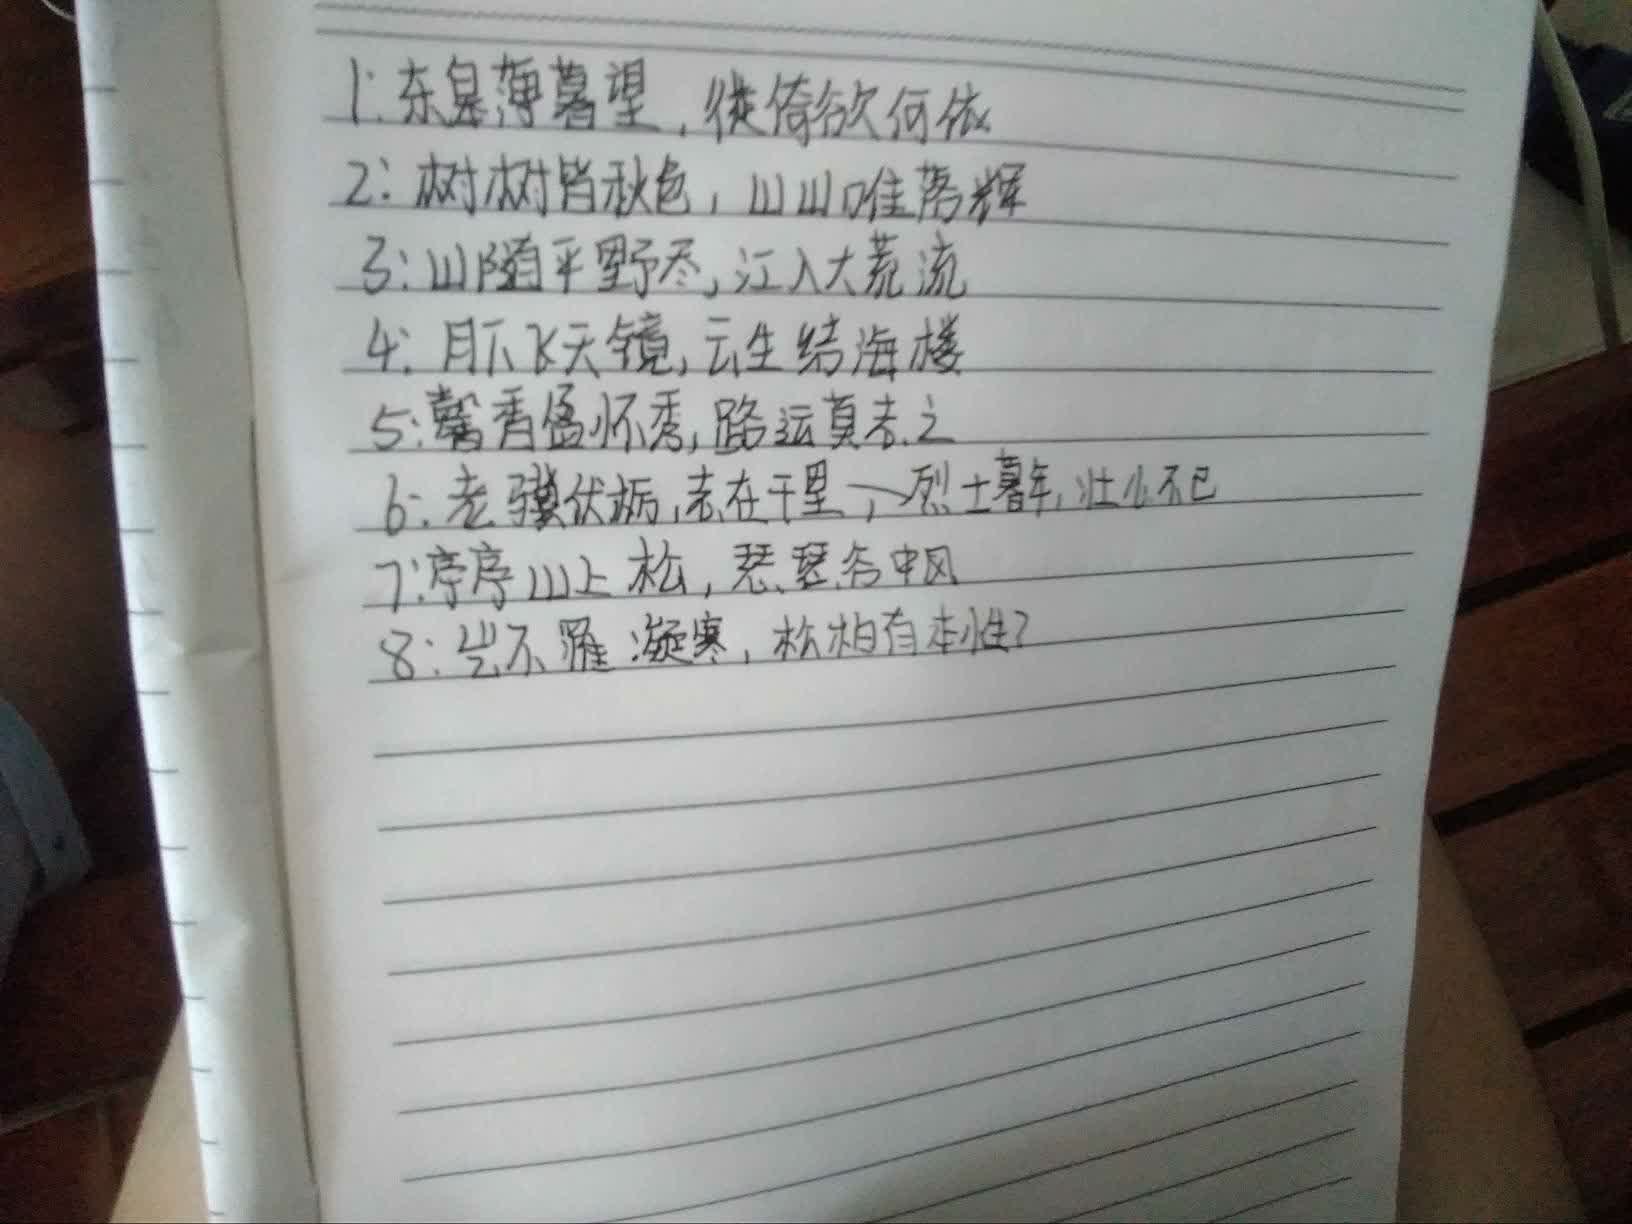 1:东皋薄暮望,徙倚欲何依
2:树树皆秋色,山山唯落辉
3:山随平野尽,江入大荒流
4:月下飞天镜,云生结海楼
5:馨香盈怀秀,路远莫志之
6:老骥伏枥,志在千里,烈士暮年,壮心不已
7:序序山上松,瑟瑟谷中风
8:岂不罹凝寒,松柏有本性?